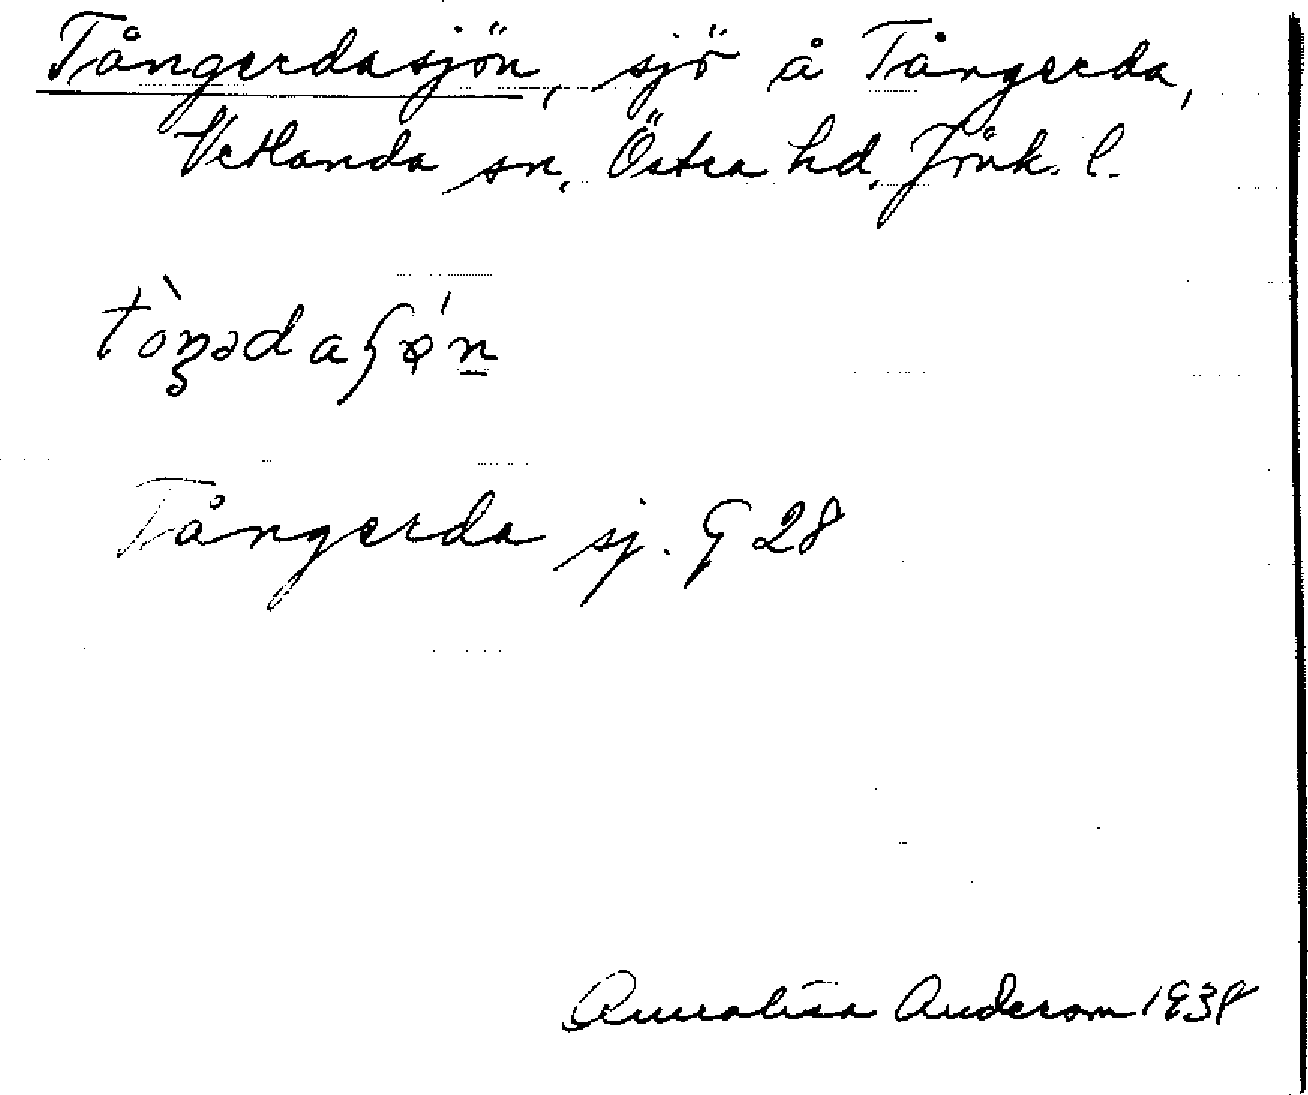 Tångerdasjön, sjö å Tångerda,
Vetlanda sn, Östra hd, Jönk. l.
tòŋədaʃǿn
Tångerda sj. G 28
Annalisa Anderson 1938